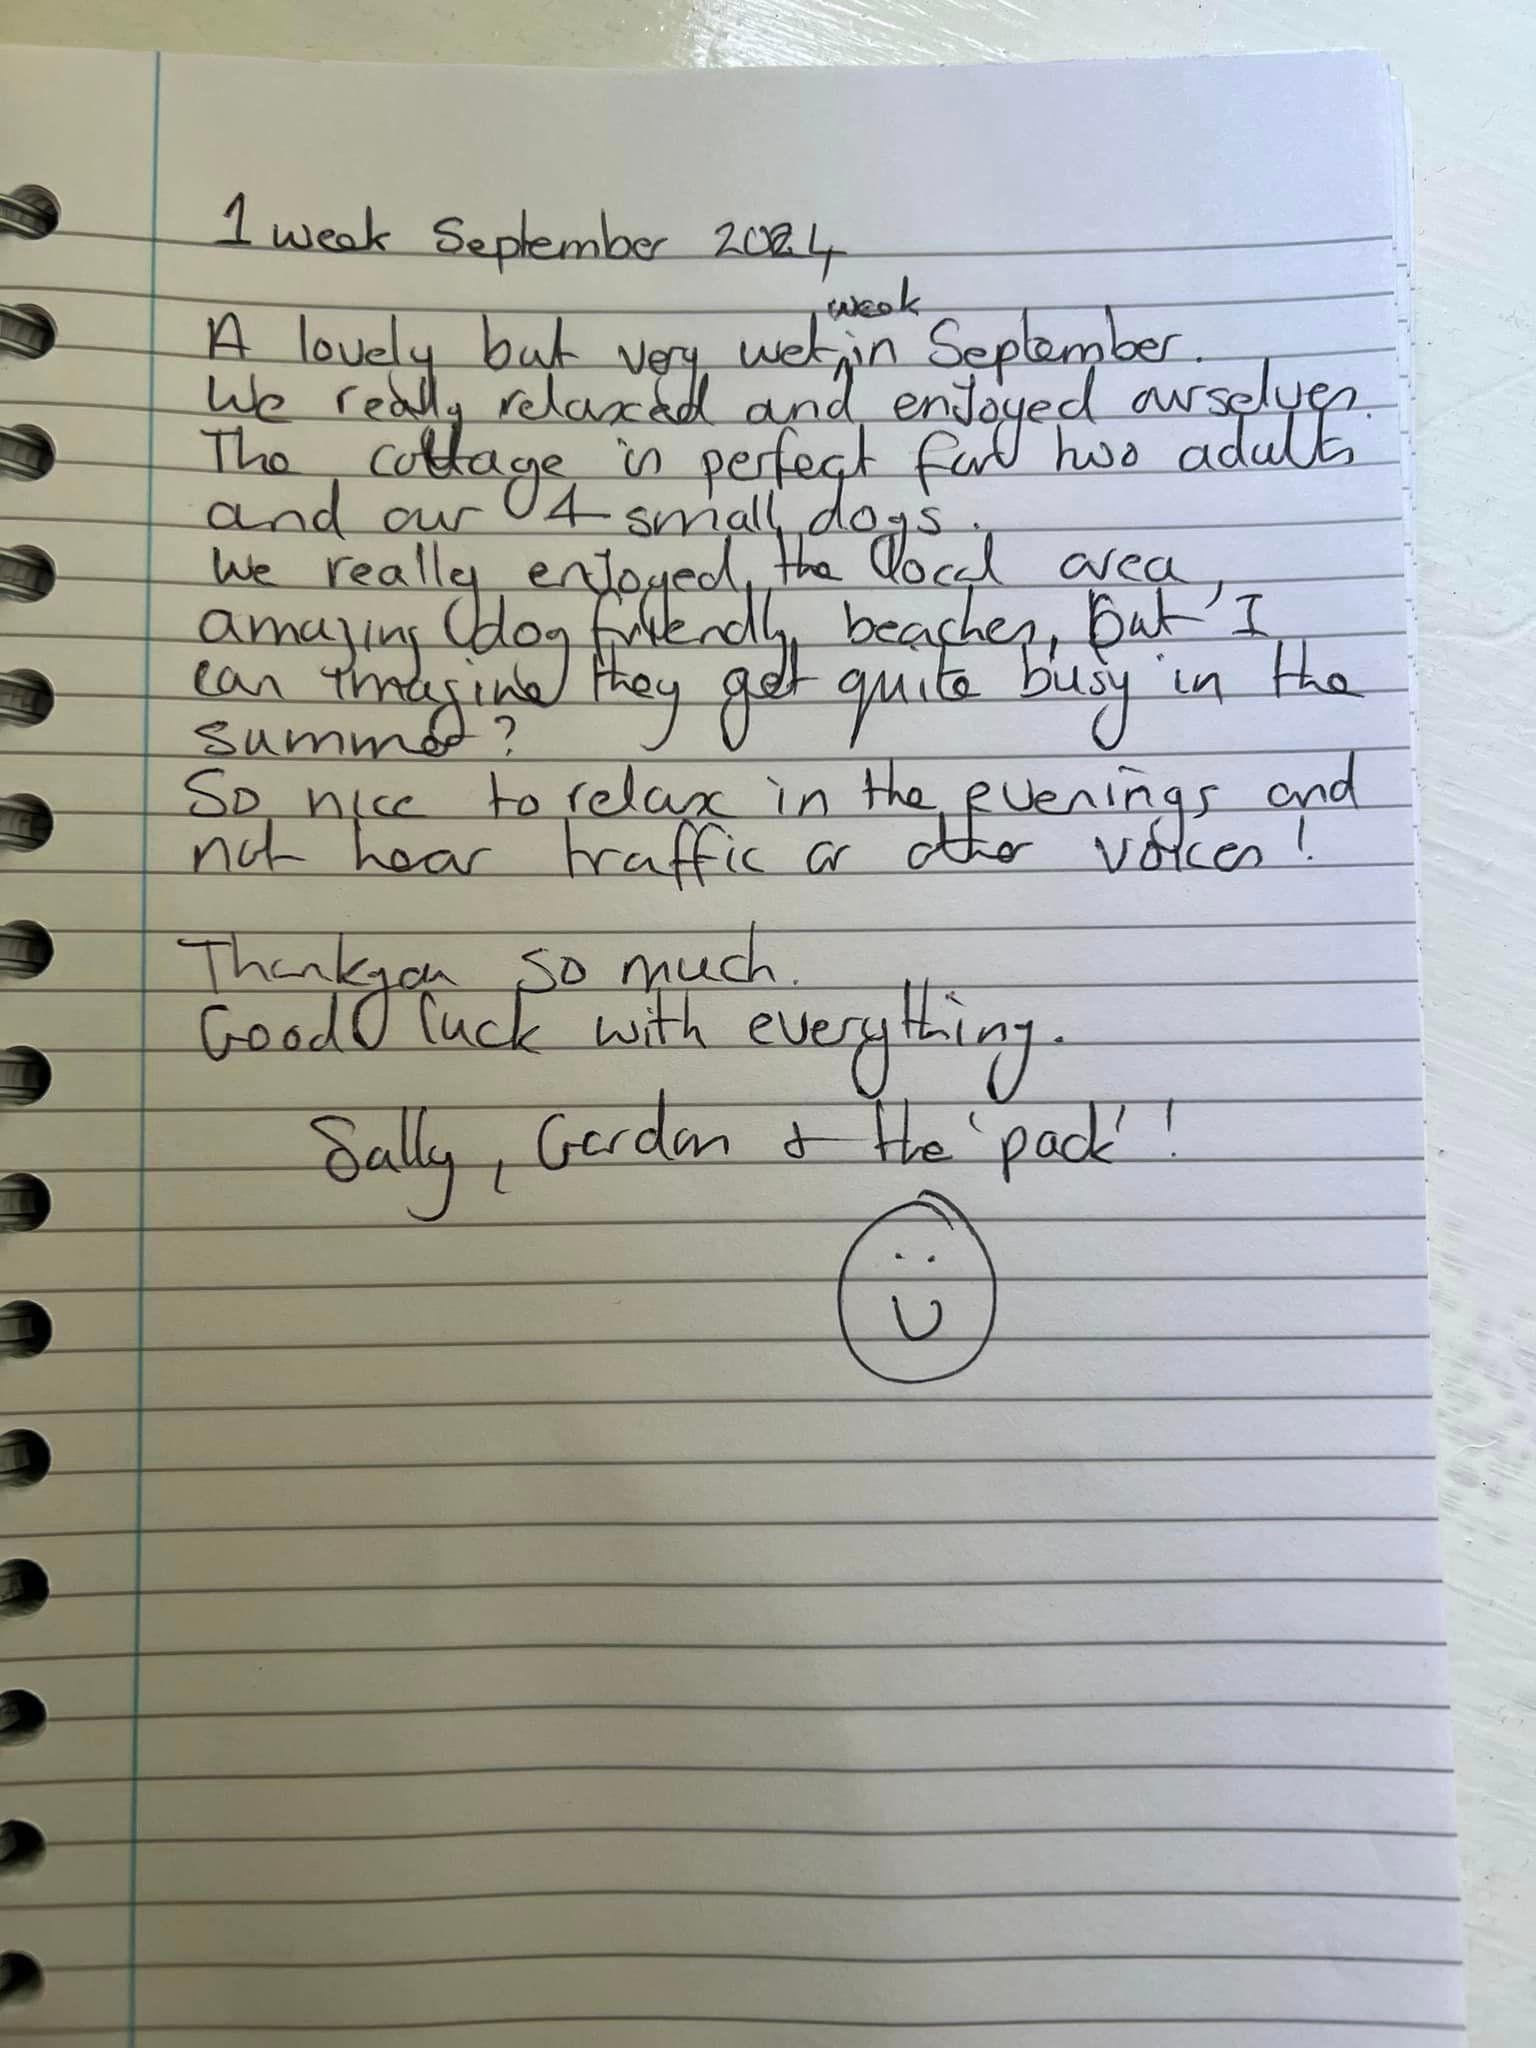 1 week September 2024
A lovely but very wet week in September.
We really relaxed and enjoyed ourselves.
The cottage is perfect for two adults
and our 4 small dogs.
We really enjoyed the local area,
amazing dog friendly beaches, but I
can imagine they get quite busy in the
summer?
So nice to relax in the evenings and
not hear traffic or other voices!
Thankyou so much.
Good luck with everything.
Sally, Gordon & the 'pack'!